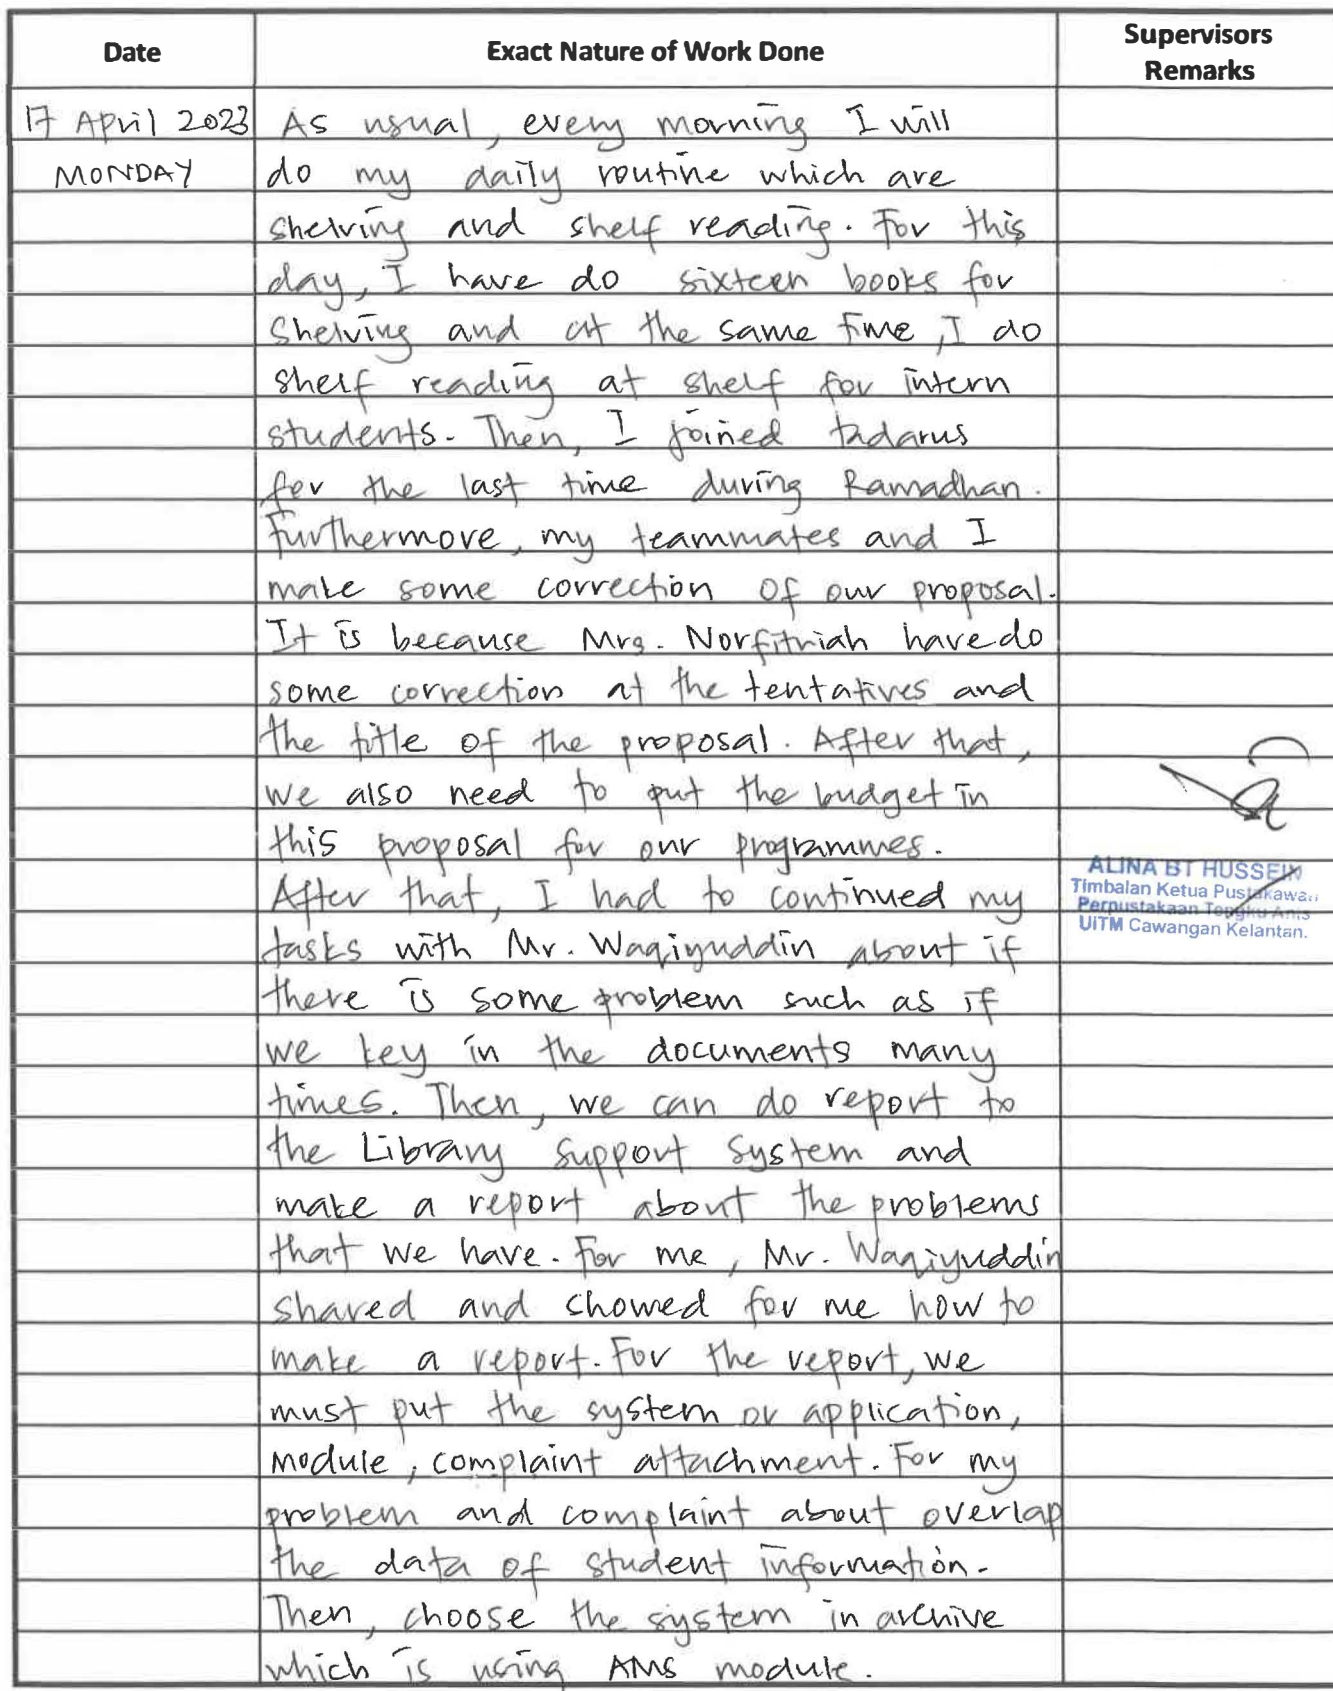 Date Exact Nature of Work Done Supervisors Remarks
17 April 2023 As usual, every morning I will
MONDAY do my daily routine which are
shelving and shelf reading. For this
day, I have do sixteen books for
shelving and at the same time, I do
shelf reading at shelf for intern
students. Then, I joined tadarus
for the last time during Ramadhan.
Furthermore, my teammates and I
make some correction of our proposal.
It is because Mrs. Norfitriah have do
some correction at the tentatives and
the title of the proposal. After that,
we also need to put the budget in
this proposal for our programmes.
After that, I had to continued my
tasks with Mr. Waqiyuddin about if
there is some problem such as if
we key in the documents many
times. Then, we can do report to
the Library Support System and
make a report about the problems
that we have. For me, Mr. Waqiyuddin
shared and showed for me how to
make a report. For the report, we
must put the system or application,
module, complaint attachment. For my
problem and complaint about overlap
the data of student information.
Then, choose the system in archive
which is using AMS module.
ALINA BT HUSSEIN
Timbalan Ketua Pustakawan
Perpustakaan Tengku Anis
UiTM Cawangan Kelantan.